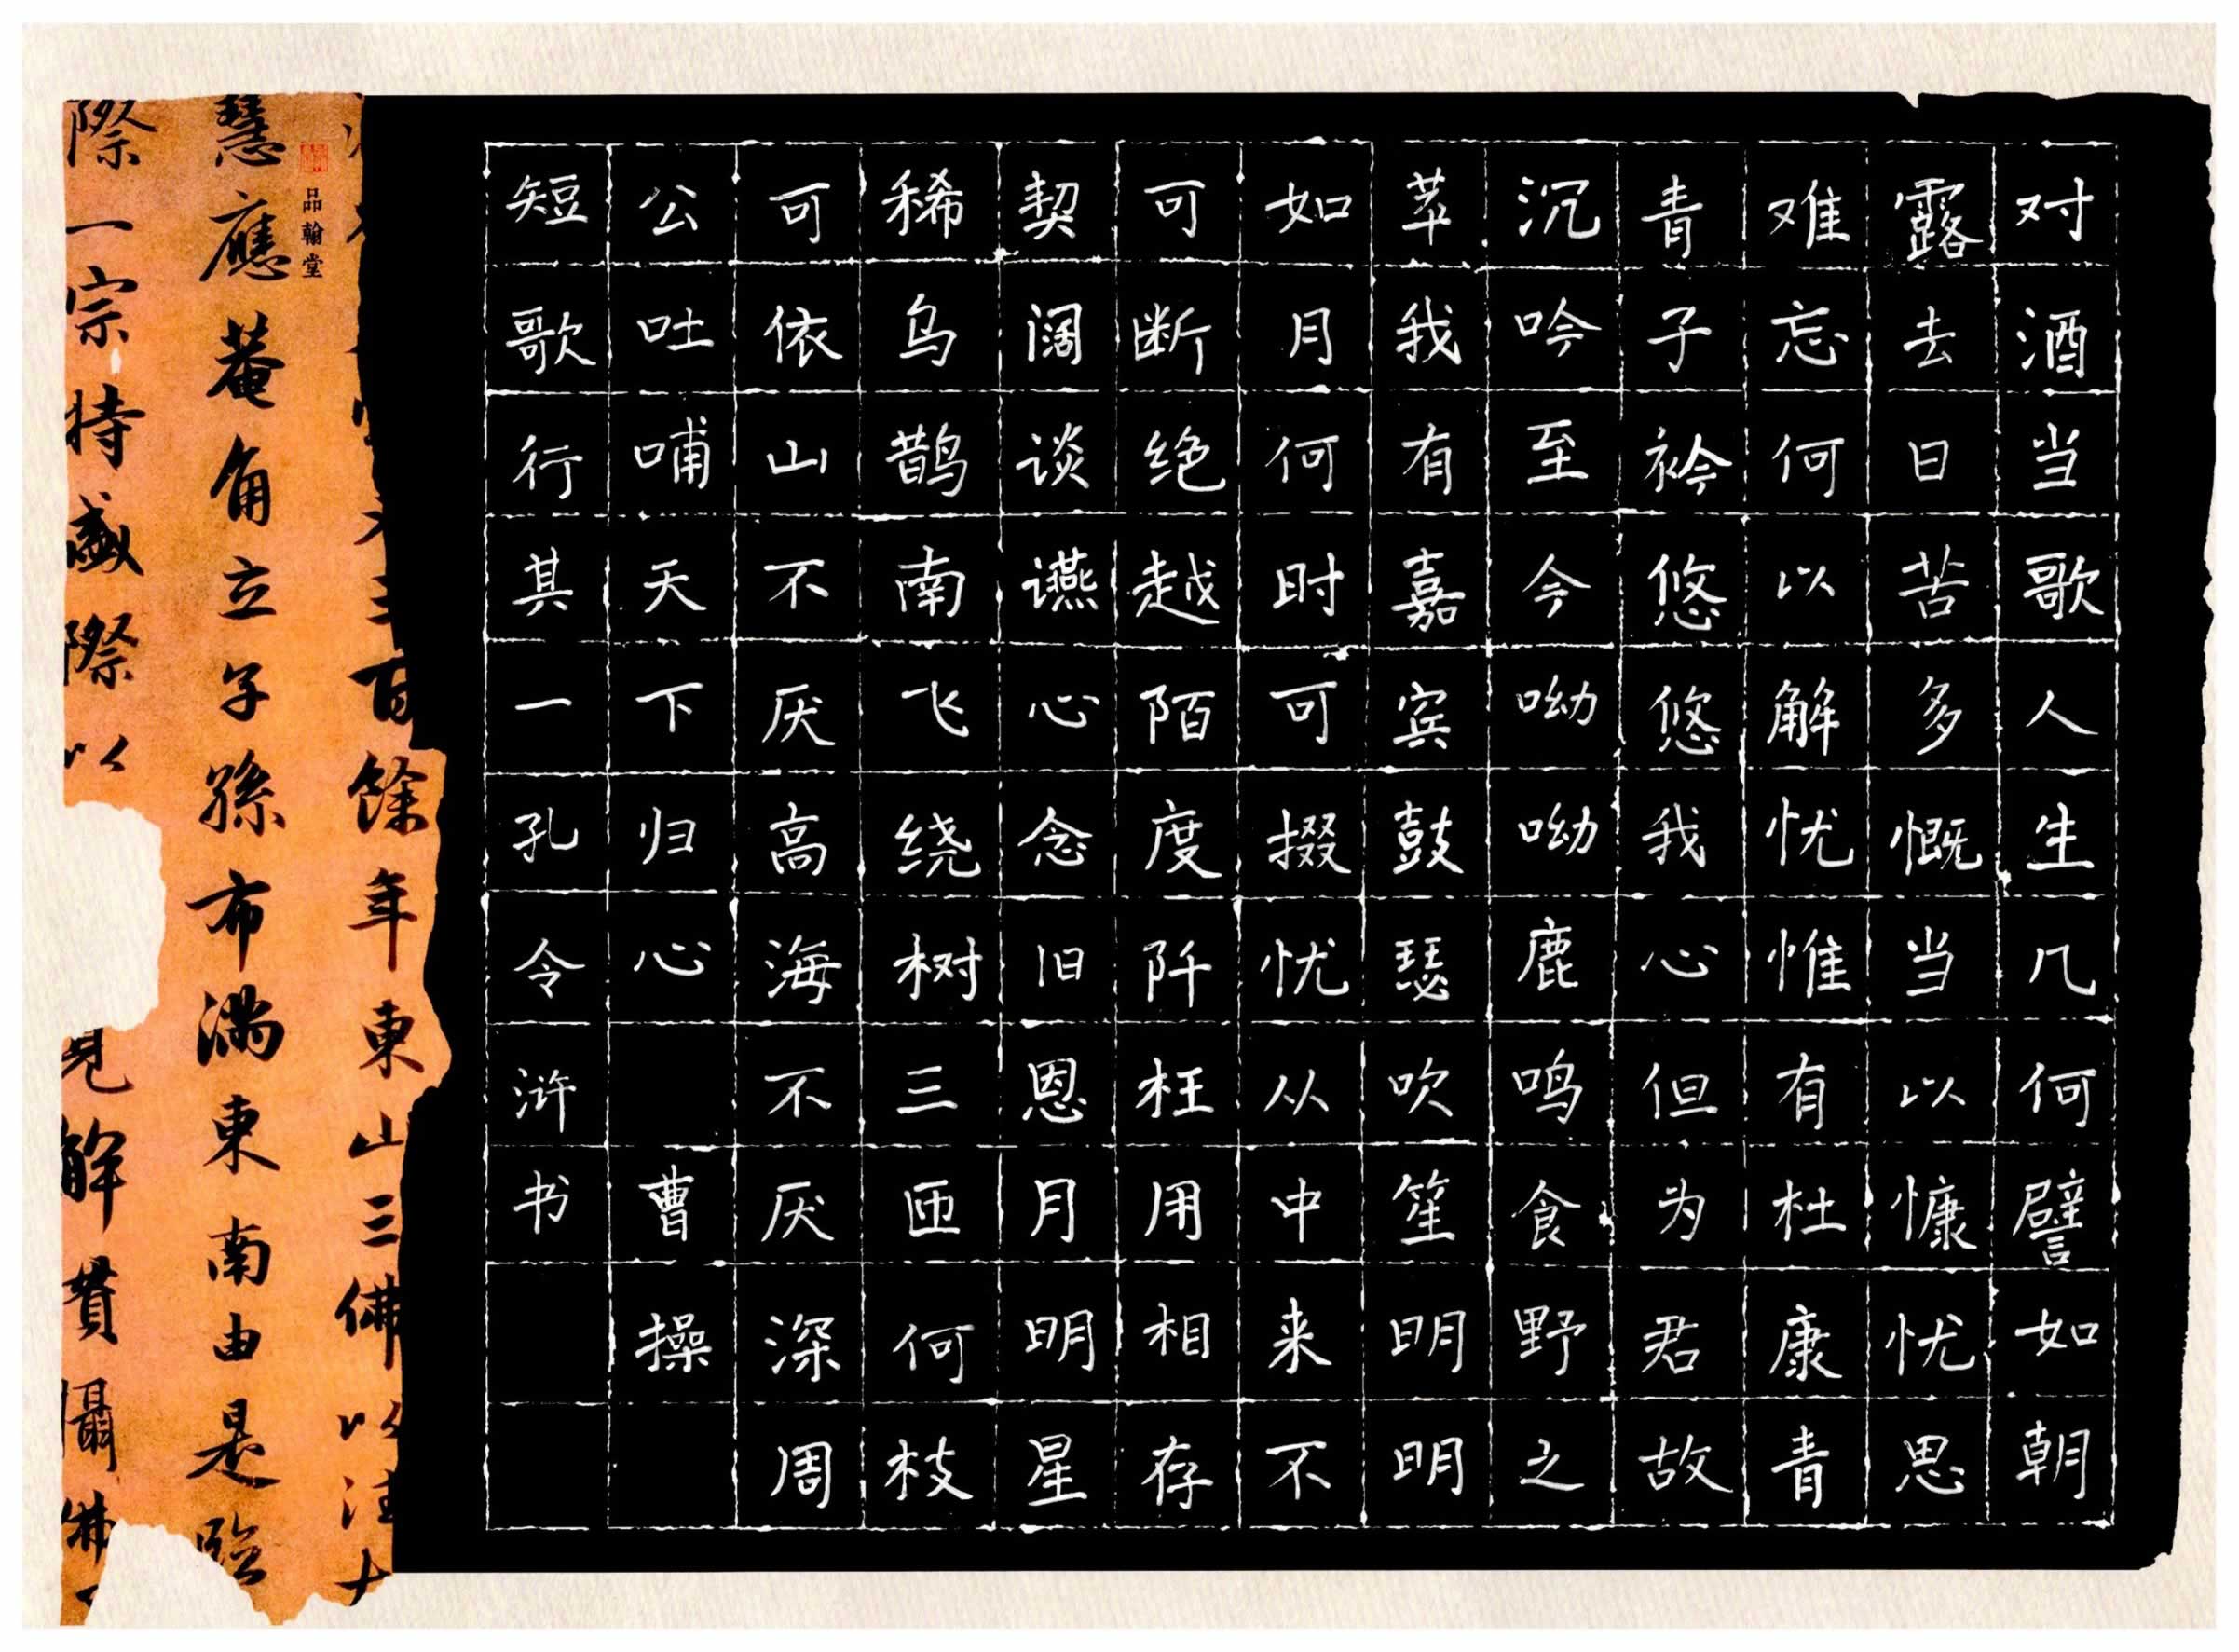 对酒当歌人生几何譬如朝
露去日苦多慨当以慷忧思
难忘何以解忧惟有杜康青
青子衿悠悠我心但为君故
沉吟至今呦呦鹿鸣食野之
苹我有嘉宾鼓瑟吹笙明明
如月何时可掇忧从中来不
可断绝越陌度阡枉用相存
契阔谈䜩心念旧恩月明星
稀乌鹊南飞绕树三匝何枝
可依山不厌高海不厌深周
公吐哺天下归心 曹操
短歌行其一孔令浒书
百餘年東山三佛以
品翰堂
慧應菴角立子孫布満東南由是臨
際一宗特盛際以
見解貫